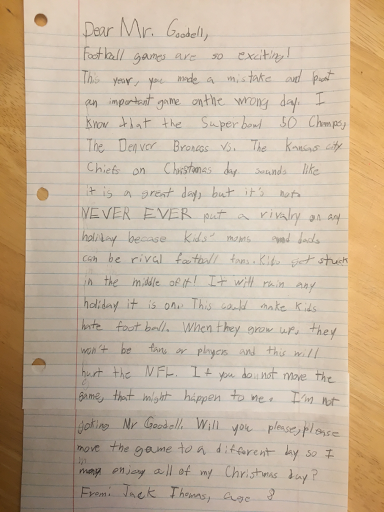 Dear Mr. Goodell,
Football games are so exciting!
This year, you made a mistake and put
an important game on the wrong day. I
know that the Superbowl 50 Champs,
The Denver Broncos vs. The Kansas city
Chiefs on Christmas day sounds like
it is a great day, but it's not.
NEVER EVER put a rivalry on any
holiday because Kids' moms and dads
can be rival football fans. Kids get stuck
in the middle of it! It will ruin any
holiday it is on. This could make kids
hate football. When they grow up, they
won't be fans or players and this will
hurt the NFL. If you do not move the
game, that might happen to me. I'm not
joking Mr Goodell. Will you please, please
move the game to a different day so I
enjoy all of my Christmas day?
From: Jack Thomas, age 8